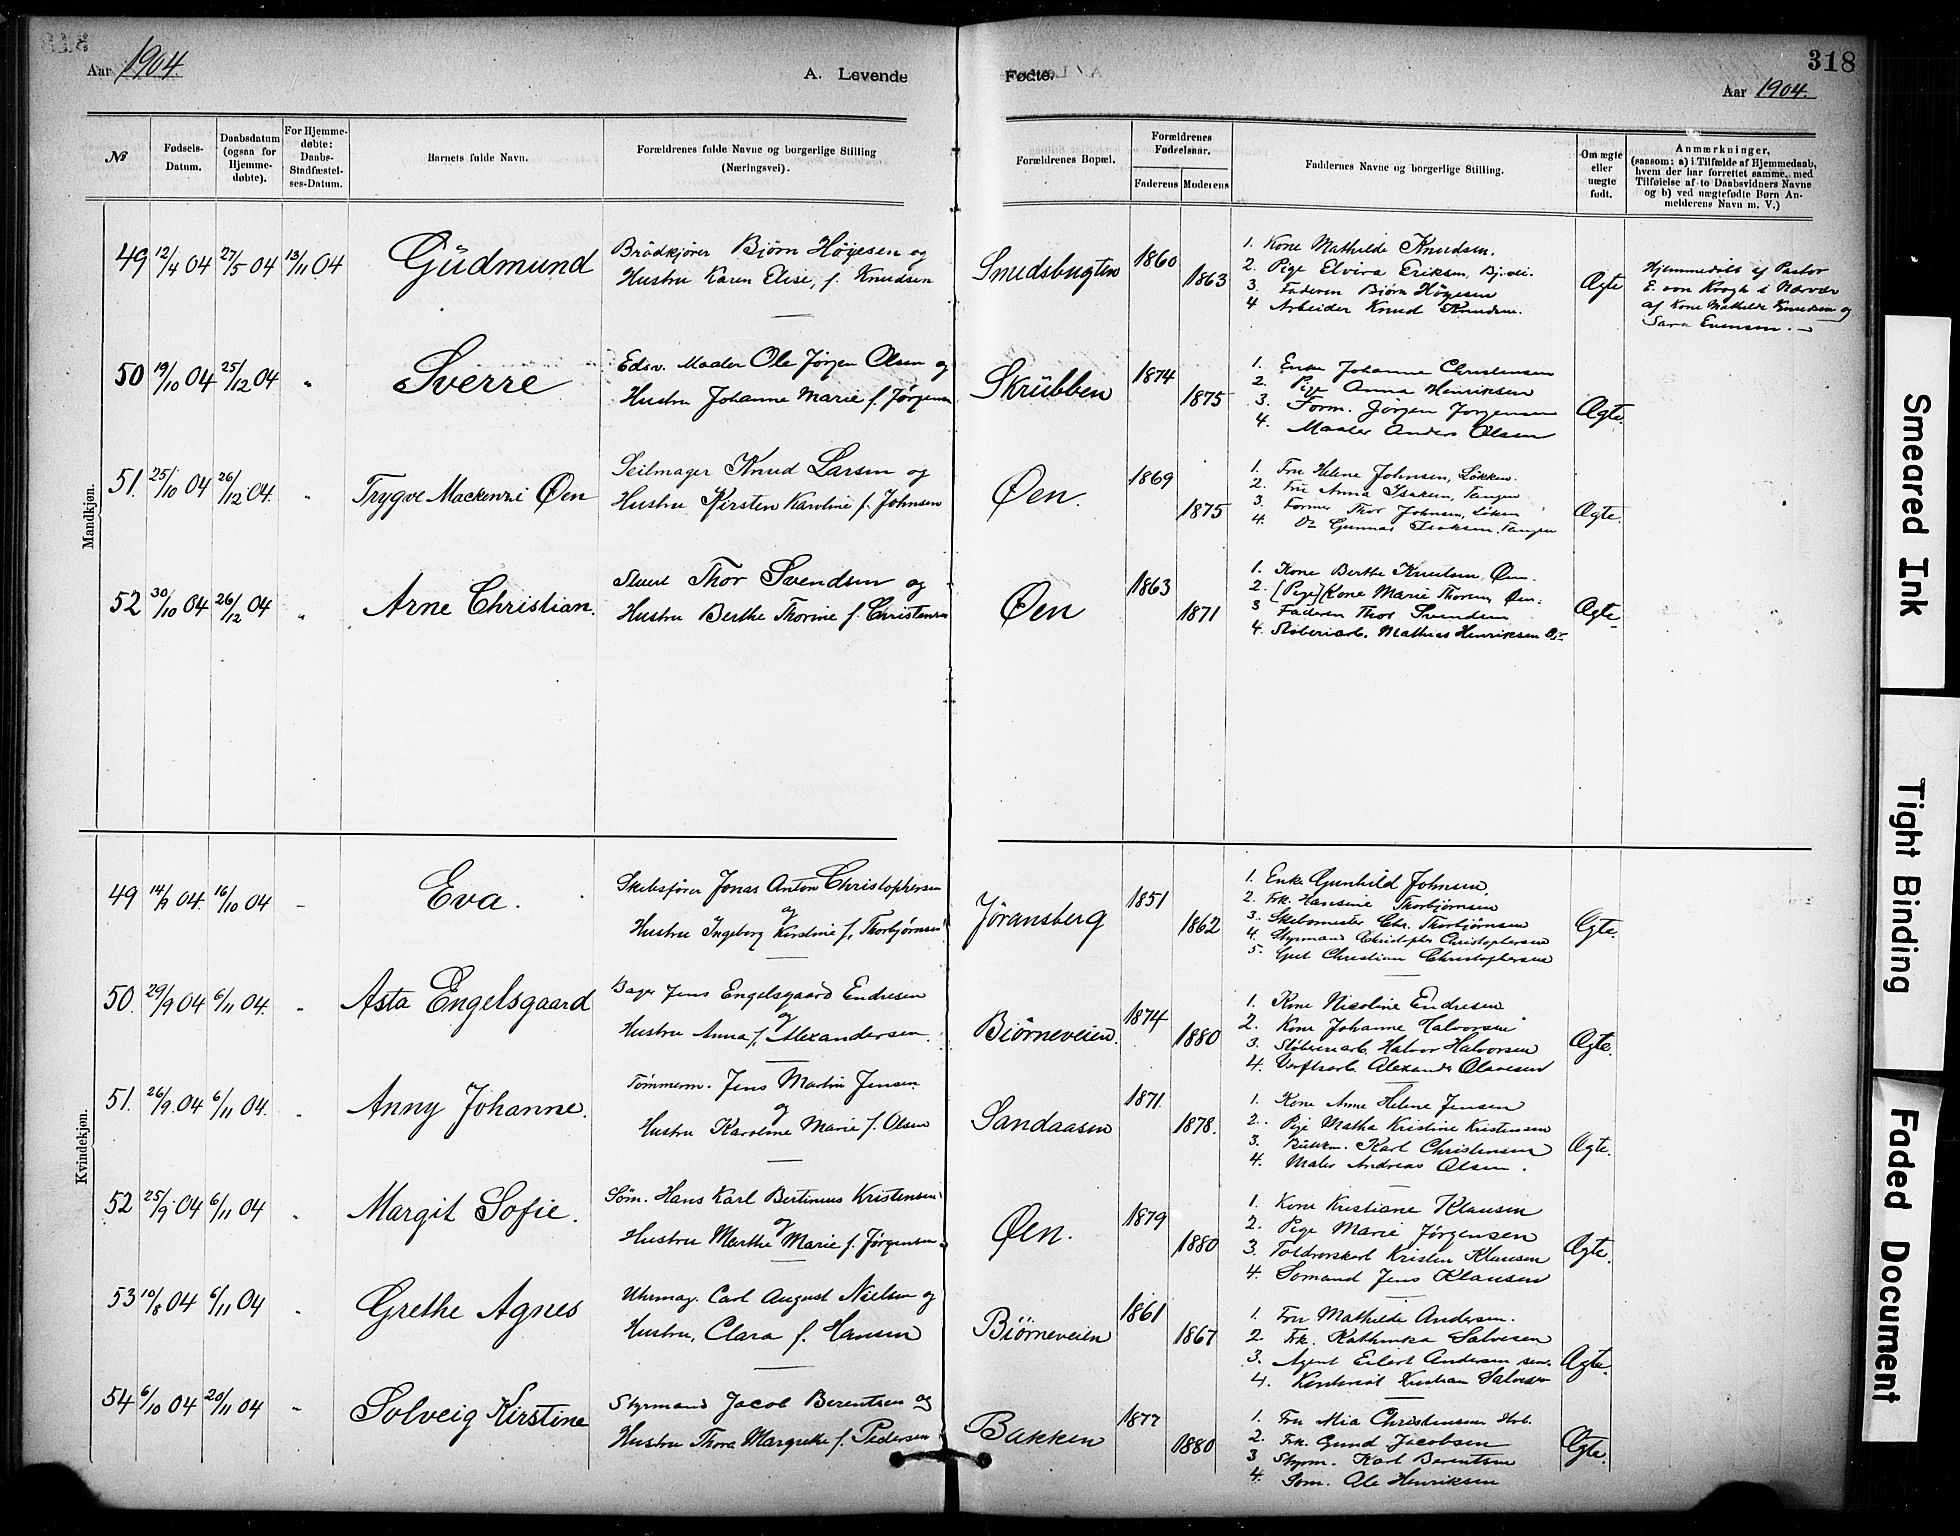 318
Aar 1904.
A. Levende
Fødte.
Aar 1904.
№
Fødsels-Datum.
Daabsdatum (ogsaa for Hjemme-døbte).
For Hjemme-døbte: Daabs-Stadfæstel-ses-Datum.
Barnets fulde Navn.
Forældrenes fulde Navne og borgerlige Stilling (Næringsvei).
Forældrenes Bopæl.
Forældrenes Fødselsaar.
Faderens
Moderens
Faddernes Navne og borgerlige Stilling.
Om ægte eller uægte født.
Anmærkninger,
(saasom: a) i Tilfælde af Hjemmedaab,
hvem der har forrettet samme, med
Tilføielse af to Daabsvidners Navne
og b) ved uægtefødte Børn An-
melderens Navn m. V.)
Mandkjøn.
49 12/4 04 27/5 04 13/11 04 Gudmund
Brødkjører Bjørn Høyesen og
Hustru Karen Elise, f. Knudsen
Smedsbugten 1860 1863
1. Kone Mathilde Knudsen.
2. Pige Elvira Eriksen, Bj.vei.
3. Faderen Bjørn Høyesen
4 Arbeider Knud Knudsen.
Ægte
Hjemmedøbt af Pastor
E. von Krogh i Nærvær
af Kone Mathilde Knudsen og
Sara Evensen.
50 19/10 04 25/12 04 " Sverre
Edsv. Maaler Ole Jørgen Olsen og
Hustru Johanne Marie f. Jørgensen
Skrubben 1874 1875
1. Enke Johanne Christensen
2. Pige Anna Henriksen
3. Form. Jørgen Jørgensen
4. Maaler Anders Olsen
Ægte.
51. 25/10 04 26/12 04. " Trygve Mackenzi Øen
Seilmager Knud Larsen og
Hustru Kirsten Karoline f. Johnsen
Øen. 1869 1875
1. Fru Helene Johnsen, Løkken.
2. Fru Anna Isaksen, Tangen
3. Former Thor Johnsen, Løken
4. Do Gunnar Isaksen, Tangen
Ægte.
52 30/10 04 26/12 04 " Arne Christian.
Stuert Thor Svendsen og
Hustru Berthe Thorine f. Christensen
Øen 1863 1871
1. Kone Berthe Knudsen, Øen.
2. [Pige] Kone Marie Thorsen, Øen.
3 Faderen Thor Svendsen
4. Støberiarb. Mathias Henriksen
Ægte
Kvindekjøn.
49 14/9 04. 16/10 04 - Eva.
Skibsfører Jonas Anton Christophersen
og
Hustru Ingeborg Kirstine f. Thorbjørnsen
Jøransberg 1851 1862
1. Enke Gunhild Johnsen
2. Frk. Hansine Thorbjørnsen
3. Skibsmester Chr. Thorbjørnsen
4. Styrmand Christopher Christophersen
5. Christian Christophersen
Ægte.
50. 29/9 04 6/11 04. " Asta Engelsgaard
Bager Jens Engelsgaard Endresen
og
Hustru Anna f. Alexandersen.
Biørneveien. 1874 1880
1. Kone Nicoline Endresen
2. Kone Johanne Halvorsen
3. Støberiarb. Halvor Halvorsen
4. Verftsarb. Alexander Olavesen
Ægte.
51. 26/9. 04 6/11 04. " Anny Johanne.
Tømmerm. Jens Martin Jensen
og
Hustru Karoline Marie f. Olsen
Sandaasen 1871. 1878.
1. Kone Anne Helene Jensen
2. Pige Matha Kristine Kristensen
3. Karl Christensen
4. Maler Andreas Olsen.
Ægte.
52 25/9 04 6/11 04 " Margit Sofie.
Søm. Hans Karl Bertinius Kristensen
og
Hustru Marthe Marie f. Jørgensen
Øen. 1879 1880
1. Kone Kristiane Klausen
2. Pige Marie Jørgensen
3. Toldrorskarl Kristen Klausen
4. Sømand Jens Klausen
Ægte.
53 10/8 04 6/11 04 " Grethe Agnes
Uhrmag. Carl August Nielsen og
Hustru, Clara f. Hansen
Biørneveien 1861 1867
1. Fru Mathilde Andersen.
2. Frk. Kathinka Salvesen
3. Agent Eilert Andersen sen.
4. Kontorist Kristian Salvesen
Ægte.
54 6/10 04 20/11 04 " Solveig Kirstine
Styrmand Jacob Berentsen og
Hustru Thora Margrethe f. Pedersen
Bakken 1877 1880
1. Fru Mia Christensen
2. Frk. Gund Jacobsen
3 Styrm. Karl Berentsen
4. Søm. Ole Henriksen
Ægte.
Smeared Ink
Tight Binding
Faded Document